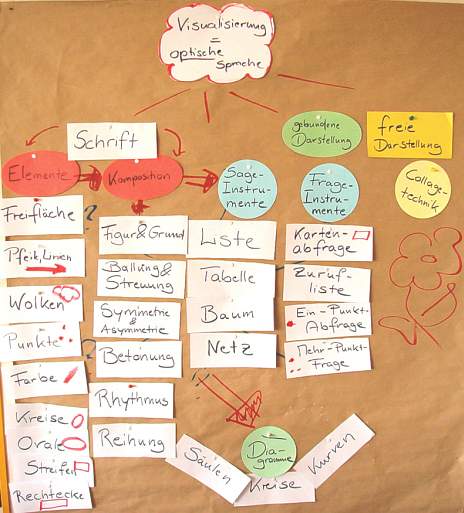 Visualisierung
=
optische
Sprache
gebundene
Darstellung
freie
Darstellung
Schrift
Elemente
Komposition
Sage-
Instru-
mente
Frage-
Instru-
mente
Collage-
technik
Freifläche
Pfeile, Linien
Wolken
Punkte
Farbe
Kreise
Ovale
Streifen
Rechtecke
Figur & Grund
Ballung &
Streuung
Symmetrie
& Asymmetrie
Betonung
Rhythmus
Reihung
Liste
Tabelle
Baum
Netz
Karten-
abfrage
Zuruf-
liste
Ein-Punkt-
Abfrage
Mehr-Punkt-
Frage
Dia-
gramme
Säulen
Kreise
Kurven